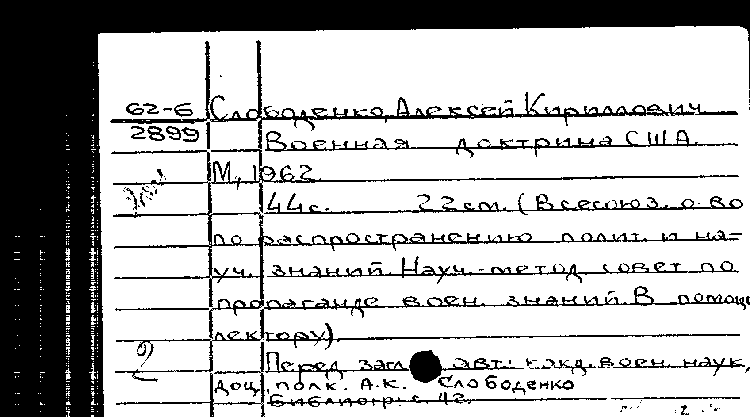 62-6 Слободенко, Алексей Кириллович
2899 Военная доктрина США.
М, 1962
44с. 22см. (Всесоюз. о-во
по распространению полит. и на=
уч. знаний. Науч.-метод совет по
пропаганде воен. знаний. В помощь
лектору).
2 Перед загл. авт: канд. воен. наук,
доц. полк. А.К. Слободенко
Библиогр: с. 42.